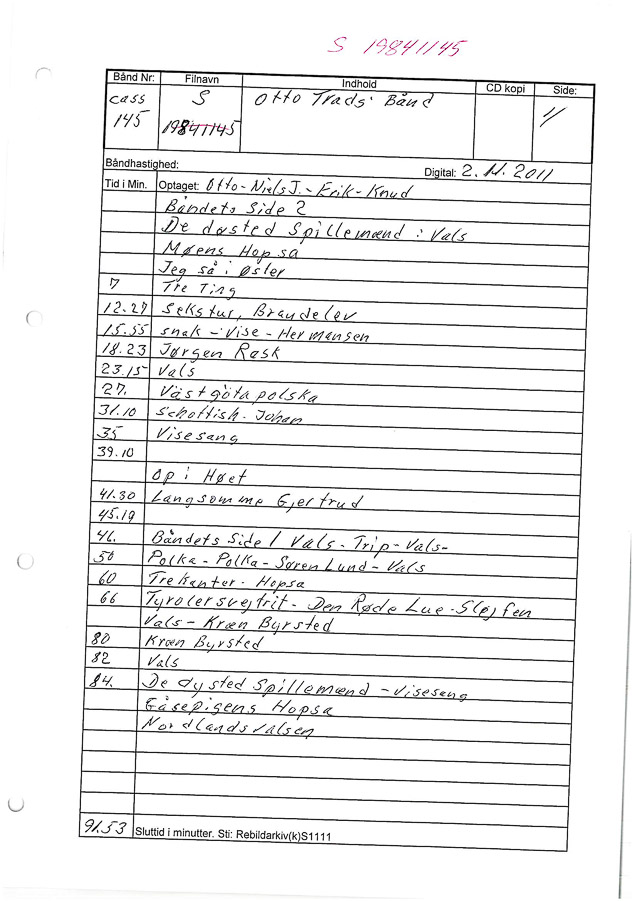 S 19841145
Bånd Nr: Filnavn Indhold CD kopi Side:
cass S Otto Trads' Bånd 1/
145 19841145
Båndhastighed: Digital: 2.11.2011
Tid i Min. Optaget: Otto-Niels J.-Erik-Knud
Båndets Side 2
De døsted Spillemænd: Vals
Møens Hopsa
Jeg så i Øster
7 Tre Ting
12.27 Sekstur, Brandelev
15.55 snak-Vise-Hermansen
18.23 Jørgen Rask
23.15 Vals
27. Västgöta polska
31.10 Schottish-Johan
35 Visesang
39.10
Op i Høet
41.30 Langsomme Gjertrud
45.19
46. Båndets Side 1 Vals-Trip-Vals-
50 Polka-Polka-Søren Lund-Vals
60 Trekanter-Hopsa
66 Tyrolersvejtrit-Den Røde Lue-Sløjfen
Vals-Kræn Byrsted
80 Kræn Byrsted
82 Vals
84. De dysted Spillemænd-Visesang
Gåsepigens Hopsa
Nordlandsvalsen
91.53 Sluttid i minutter. Sti: Rebildarkiv(k)S1111